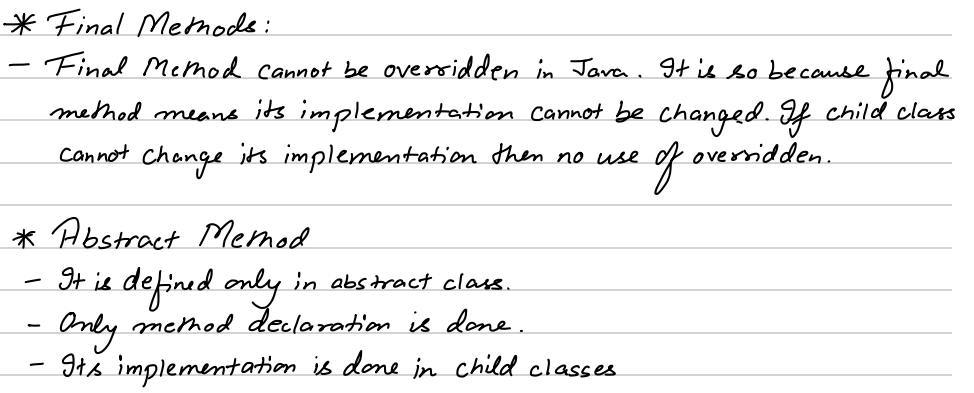 * Final Methods:
- Final Method cannot be overridden in Java. It is so because final
method means its implementation cannot be changed. If child class
cannot change its implementation then no use of overridden.
* Abstract Method
- It is defined only in abstract class.
- Only method declaration is done.
- Its implementation is done in child classes